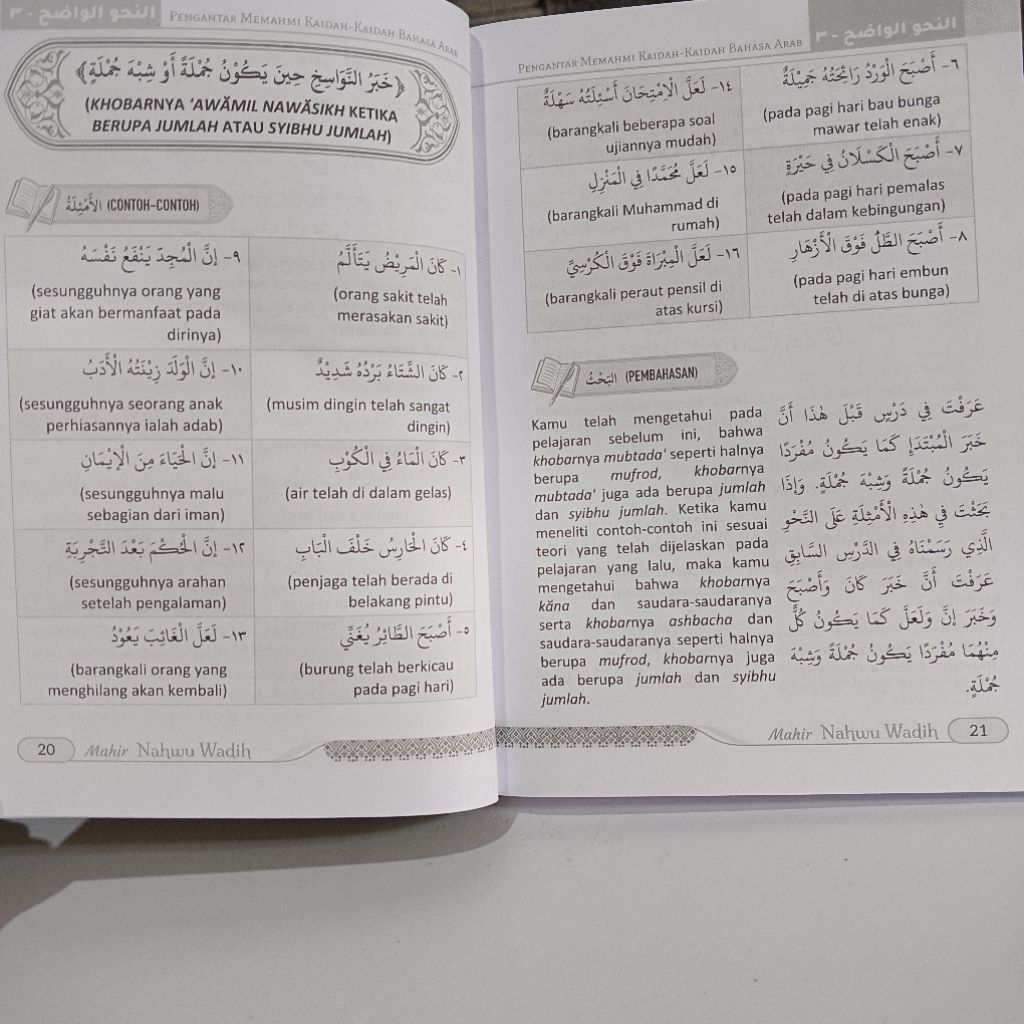 النحو الواضح - ٣
PENGANTAR MEMAHMI KAIDAH-KAIDAH BAHASA ARAB
﴿خَبَرُ النَّوَاسِخِ حِينَ يَكُوْنُ جُمْلَةً أَوْ شِبْهَ جُمْلَةٍ﴾
(KHOBARNYA 'AWĂMIL NAWĂSIKH KETIKA
BERUPA JUMLAH ATAU SYIBHU JUMLAH)
الأَمْثِلَةُ (CONTOH-CONTOH)
١- كَانَ الْمَرِيْضُ يَتَأَلَّمُ
(orang sakit telah
merasakan sakit)
٢- كَانَ الشِّتَاءُ بَرْدُهُ شَدِيْدٌ
(musim dingin telah sangat
dingin)
٣- كَانَ الْمَاءُ فِي الْكُوْبِ
(air telah di dalam gelas)
٤- كَانَ الْحَارِسُ خَلْفَ الْبَابِ
(penjaga telah berada di
belakang pintu)
٥- أَصْبَحَ الطَّائِرُ يُغَنِّي
(burung telah berkicau
pada pagi hari)
٩- إِنَّ الْمُجِدَّ يَنْفَعُ نَفْسَهُ
(sesungguhnya orang yang
giat akan bermanfaat pada
dirinya)
١٠- إِنَّ الْوَلَدَ زِيْنَتُهُ الْأَدَبُ
(sesungguhnya seorang anak
perhiasannya ialah adab)
١١- إِنَّ الْحَيَاءَ مِنَ الْإِيْمَانِ
(sesungguhnya malu
sebagian dari iman)
١٢- إِنَّ الْحُكْمَ بَعْدَ التَّجْرِبَةِ
(sesungguhnya arahan
setelah pengalaman)
١٣- لَعَلَّ الْغَائِبَ يَعُوْدُ
(barangkali orang yang
menghilang akan kembali)
20
Mahir Nahwu Wadih
PENGANTAR MEMAHMI KAIDAH-KAIDAH BAHASA ARAB
النحو الواضح - ٣
٦- أَصْبَحَ الْوَرْدُ رَائِحَتُهُ جَمِيْلَةٌ
(pada pagi hari bau bunga
mawar telah enak)
٧- أَصْبَحَ الْكَسْلَانُ فِي حَيْرَةٍ
(pada pagi hari pemalas
telah dalam kebingungan)
٨- أَصْبَحَ الطَّلُّ فَوْقَ الْأَزْهَارِ
(pada pagi hari embun
telah di atas bunga)
١٤- لَعَلَّ الْاِمْتِحَانَ أَسْئِلَتُهُ سَهْلَةٌ
(barangkali beberapa soal
ujiannya mudah)
١٥- لَعَلَّ مُحَمَّدًا فِي الْمَنْزِلِ
(barangkali Muhammad di
rumah)
١٦- لَعَلَّ الْمِبْرَاةَ فَوْقَ الْكُرْسِيِّ
(barangkali peraut pensil di
atas kursi)
البَحْثُ (PEMBAHASAN)
عَرَفْتَ فِي دَرْسٍ قَبْلَ هٰذَا أَنَّ
خَبَرَ الْمُبْتَدَإِ كَمَا يَكُوْنُ مُفْرَدًا
يَكُوْنُ جُمْلَةً وَشِبْهَ جُمْلَةٍ. وَإِذَا
بَحَثْتَ فِي هٰذِهِ الْأَمْثِلَةِ عَلَى النَّحْوِ
الَّذِي رَسَمْنَاهُ فِي الدَّرْسِ السَّابِقِ
عَرَفْتَ أَنَّ خَبَرَ كَانَ وَأَصْبَحَ
وَخَبَرَ إِنَّ وَلَعَلَّ كَمَا يَكُوْنُ كُلٌّ
مِنْهُمَا مُفْرَدًا يَكُوْنُ جُمْلَةً وَشِبْهَ
جُمْلَةٍ.
Kamu telah mengetahui pada
pelajaran sebelum ini, bahwa
khobarnya mubtada' seperti halnya
berupa mufrod, khobarnya
mubtada' juga ada berupa jumlah
dan syibhu jumlah. Ketika kamu
meneliti contoh-contoh ini sesuai
teori yang telah dijelaskan pada
pelajaran yang lalu, maka kamu
mengetahui bahwa khobarnya
kăna dan saudara-saudaranya
serta khobarnya ashbacha dan
saudara-saudaranya seperti halnya
berupa mufrod, khobarnya juga
ada berupa jumlah dan syibhu
jumlah.
Mahir Nahwu Wadih
21